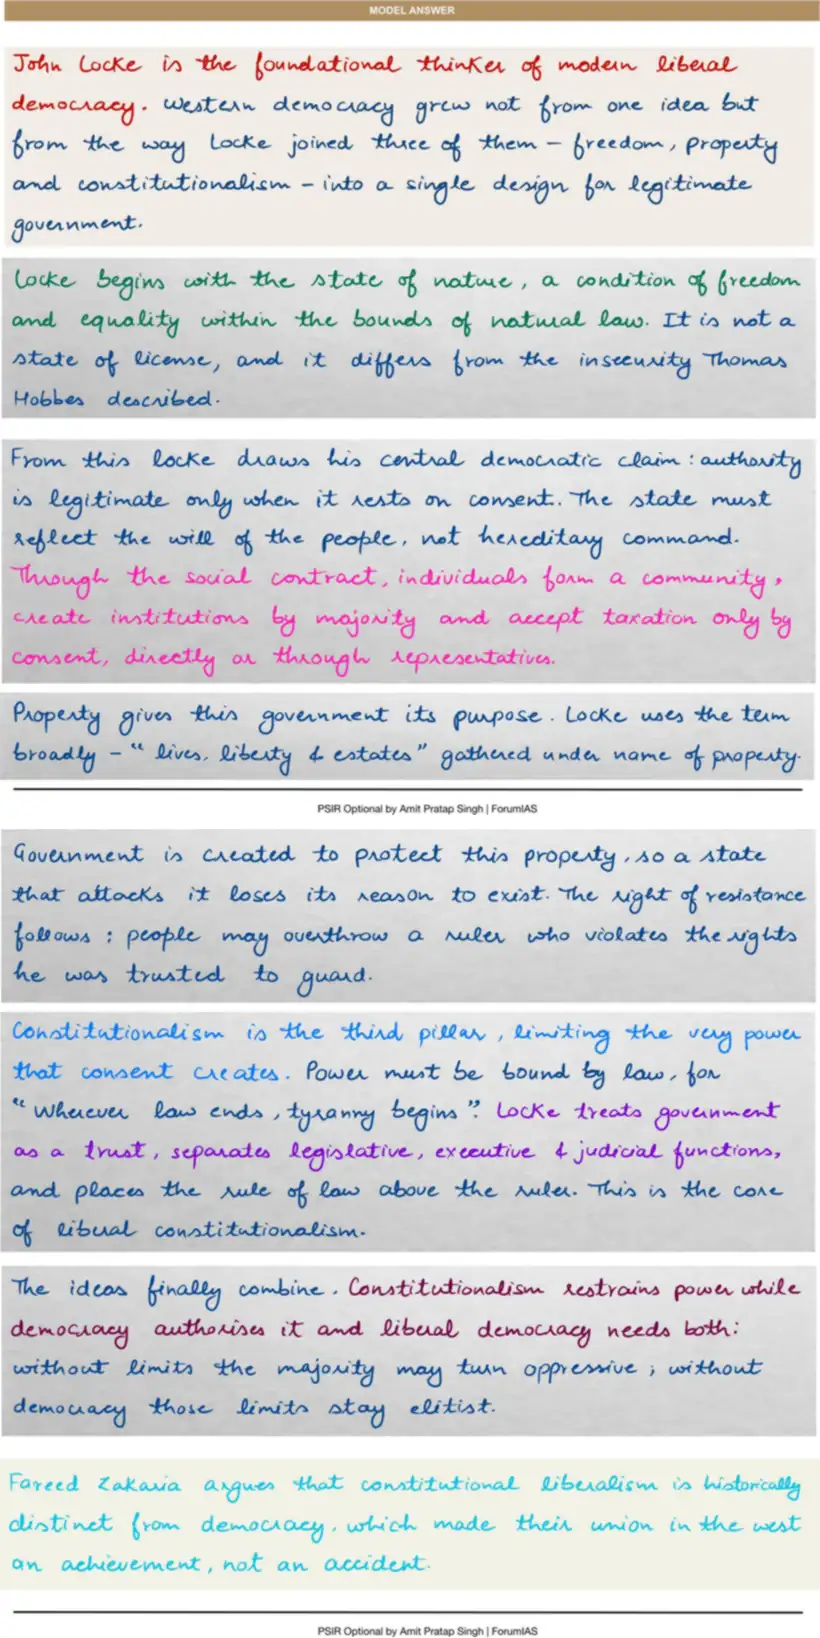 MODEL ANSWER
John Locke is the foundational thinker of modern liberal
democracy. Western democracy grew not from one idea but
from the way Locke joined three of them – freedom, property
and constitutionalism – into a single design for legitimate
government.
Locke begins with the state of nature, a condition of freedom
and equality within the bounds of natural law. It is not a
state of license, and it differs from the insecurity Thomas
Hobbes described.
From this Locke draws his central democratic claim: authority
is legitimate only when it rests on consent. The state must
reflect the will of the people, not hereditary command.
Through the social contract, individuals form a community,
create institutions by majority and accept taxation only by
consent, directly or through representatives.
Property gives this government its purpose. Locke uses the term
broadly – "lives, liberty & estates" gathered under name of property.
PSIR Optional by Amit Pratap Singh | ForumIAS
Government is created to protect this property, so a state
that attacks it loses its reason to exist. The right of resistance
follows: people may overthrow a ruler who violates the rights
he was trusted to guard.
Constitutionalism is the third pillar, limiting the very power
that consent creates. Power must be bound by law, for
"Wherever law ends, tyranny begins". Locke treats government
as a trust, separates legislative, executive & judicial functions,
and places the rule of law above the ruler. This is the core
of liberal constitutionalism.
The ideas finally combine. Constitutionalism restrains power while
democracy authorises it and liberal democracy needs both:
without limits the majority may turn oppressive; without
democracy those limits stay elitist.
Fareed Zakaria argues that constitutional liberalism is historically
distinct from democracy, which made their union in the west
an achievement, not an accident.
PSIR Optional by Amit Pratap Singh | ForumIAS